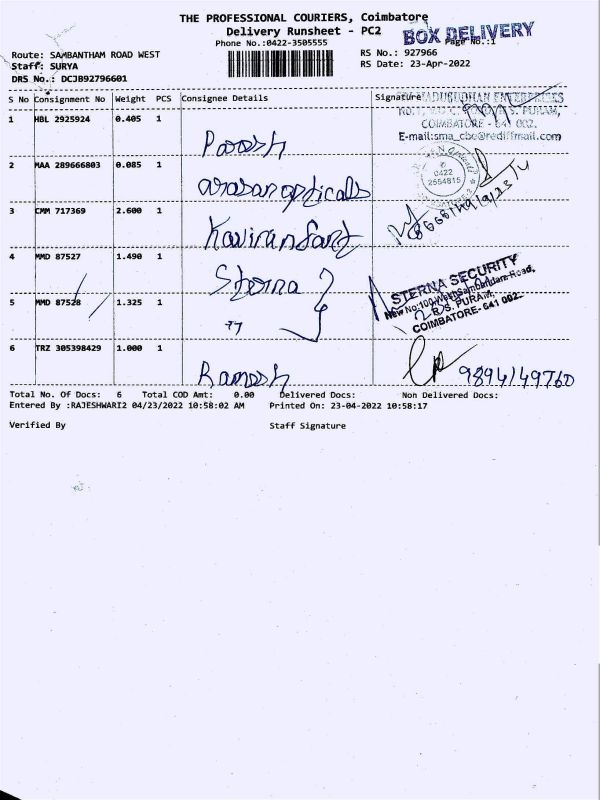 THE PROFESSIONAL COURIERS, Coimbatore
Delivery Runsheet - PC2
Phone No.:0422-3505555
BOX DELIVERY
Page No.:1
Route: SAMBANTHAM ROAD WEST
Staff: SURYA
DRS No.: DCJB92796601
RS No.: 927966
RS Date: 23-Apr-2022
S No Consignment No Weight PCS Consignee Details Signature
1 HBL 2925924 0.405 1
COIMBATORE - 641 002.
E-mail:sma_cbe@rediffmail.com
2 MAA 289666803 0.085 1 arasan opticals
0422
2554815
3 CMM 717369 2.600 1
4 MMD 87527 1.490 1 Sterna
STERNA SECURITY
New No:100, West Sambandam Road,
R.S. PURAM,
COIMBATORE- 641 002.
5 MMD 87528 1.325 1 "
6 TRZ 305398429 1.000 1 Ramesh 9894149760
Total No. Of Docs: 6 Total COD Amt: 0.00 Delivered Docs: Non Delivered Docs:
Entered By :RAJESHWARI2 04/23/2022 10:58:02 AM Printed On: 23-04-2022 10:58:17
Verified By Staff Signature